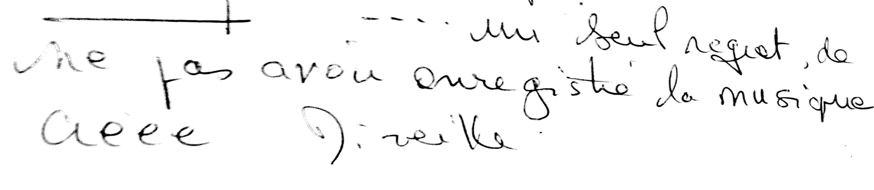 .... un seul regret, de
ne pas avoir enregistré la musique